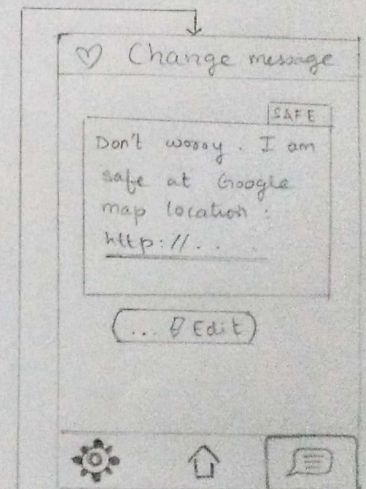 Change message
SAFE
Don't worry. I am
safe at Google
map location:
http://...
... Edit